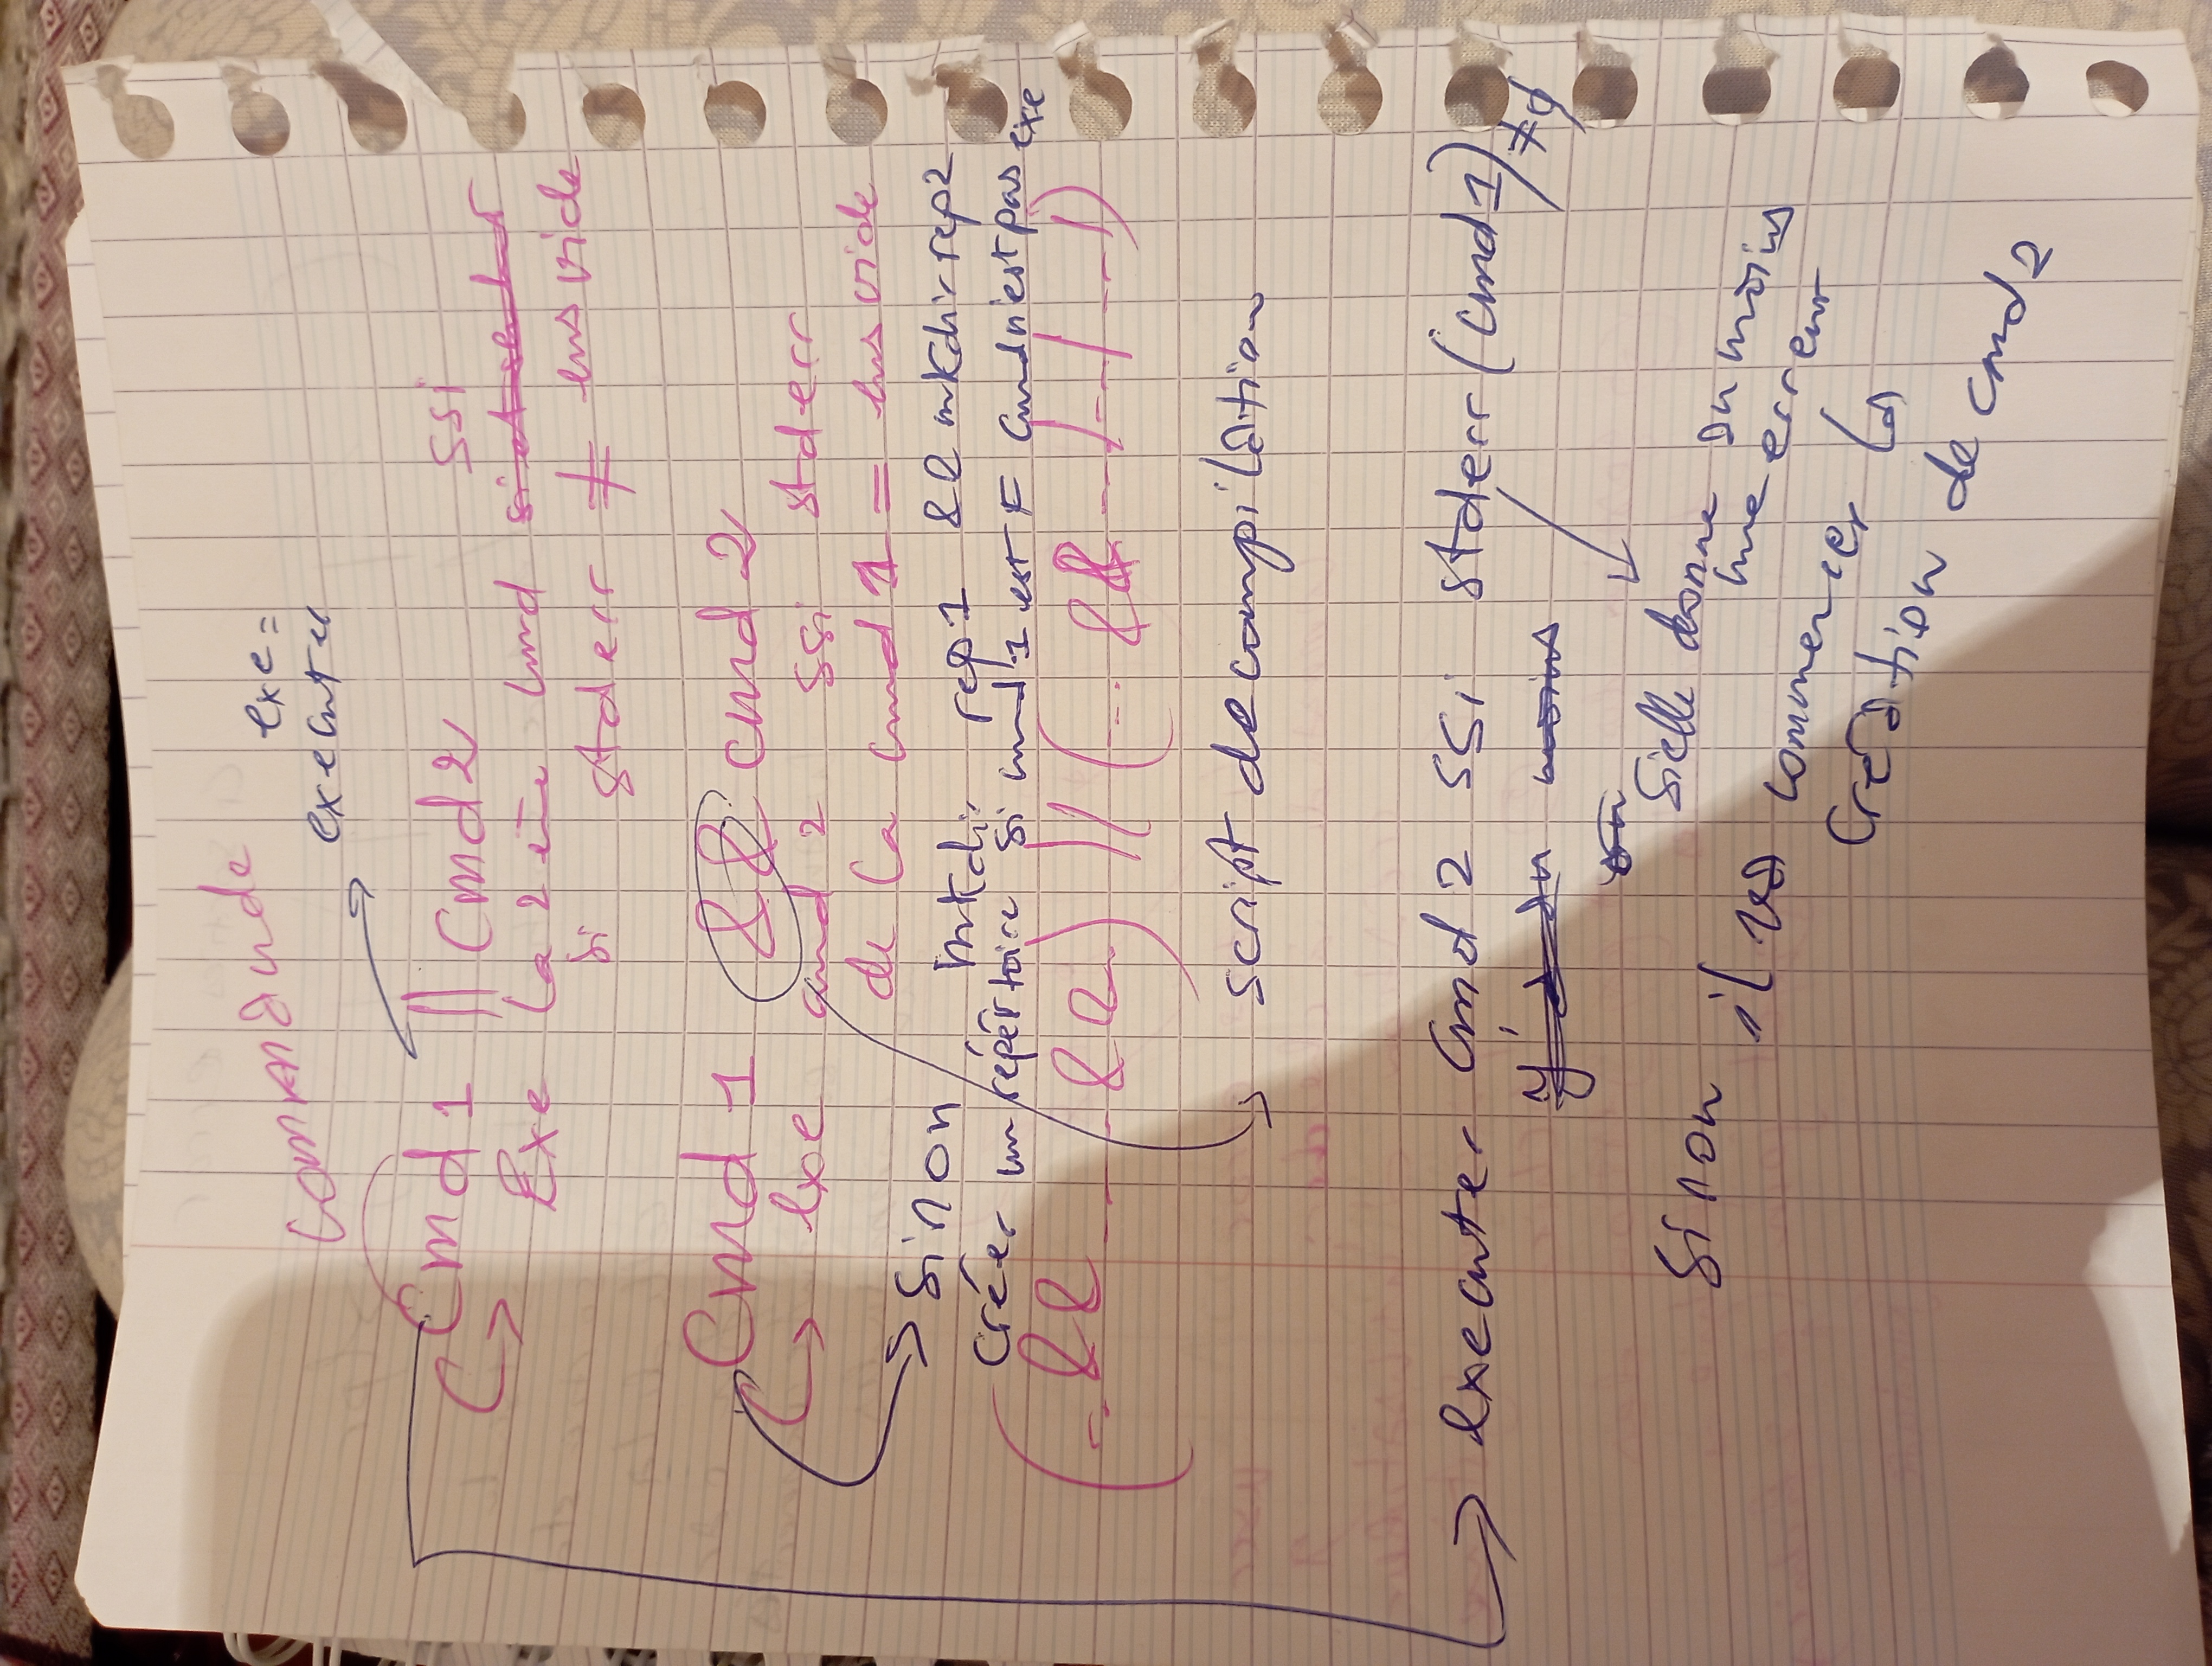 commande
exe =
executer
Cmd 1 || Cmd 2
Exe la 2 ème cmd ssi
si stderr ≠ ens vide
Cmd 1 && cmd 2
exe cmd 2 ssi stderr
de la cmd 1 = ens vide
sinon mkdir rep1 && mkdir rep2
créer un répertoire si cmd 1 est F cmd n'est pas exe
(-.. && ---- && -) || (-.. && --/--/--/)
script de compilation
executer cmd 2 ssi stderr (cmd 1) ≠ ϕ
y'a au moins
si elle donne au moins
une erreur
sinon il va commencer la
création de cmd 2